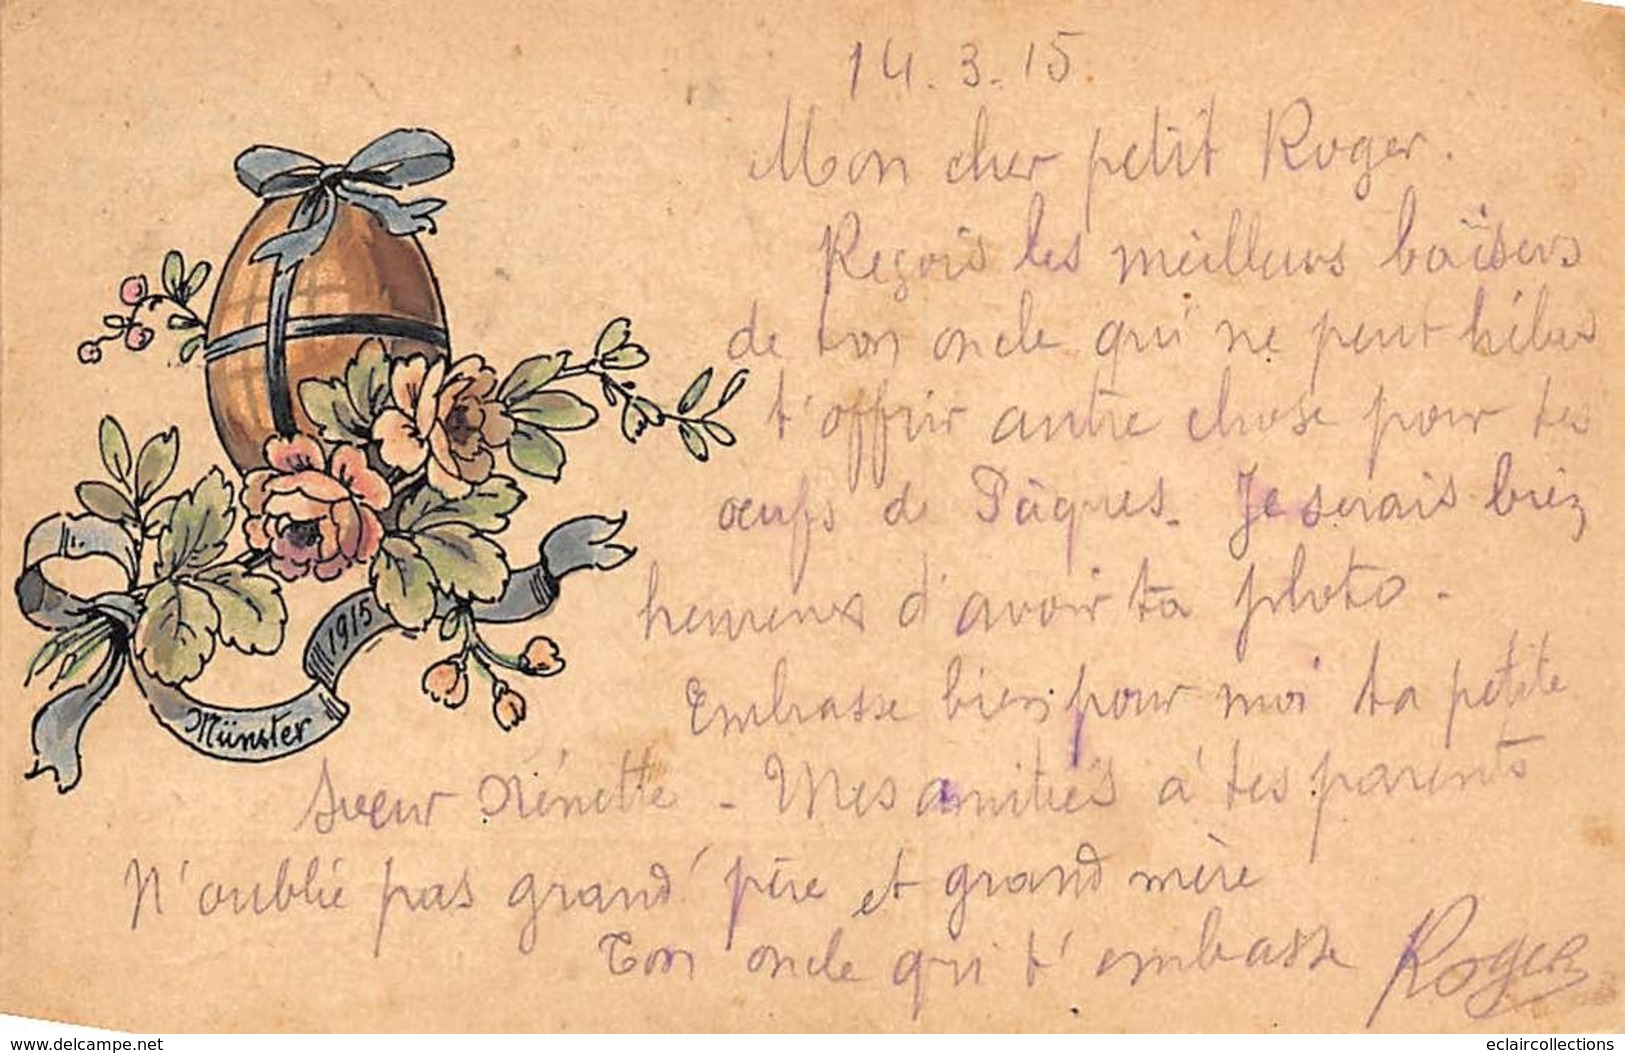 14.3.15
Mon cher petit Roger.
Reçois les meilleurs baïsers
de ton oncle qui ne peut hélas
t'offrir autre chose pour tes
œufs de Pâques. Je serais bien
heureux d'avoir ta photo.
Embrasse bien pour moi ta petite
sœur Nénette - Mes amitiés à tes parents
N'oublie pas grand'père et grand mère
Ton oncle qui t'embrasse Roger
1915
Münster
www.delcampe.net
eclaircollections